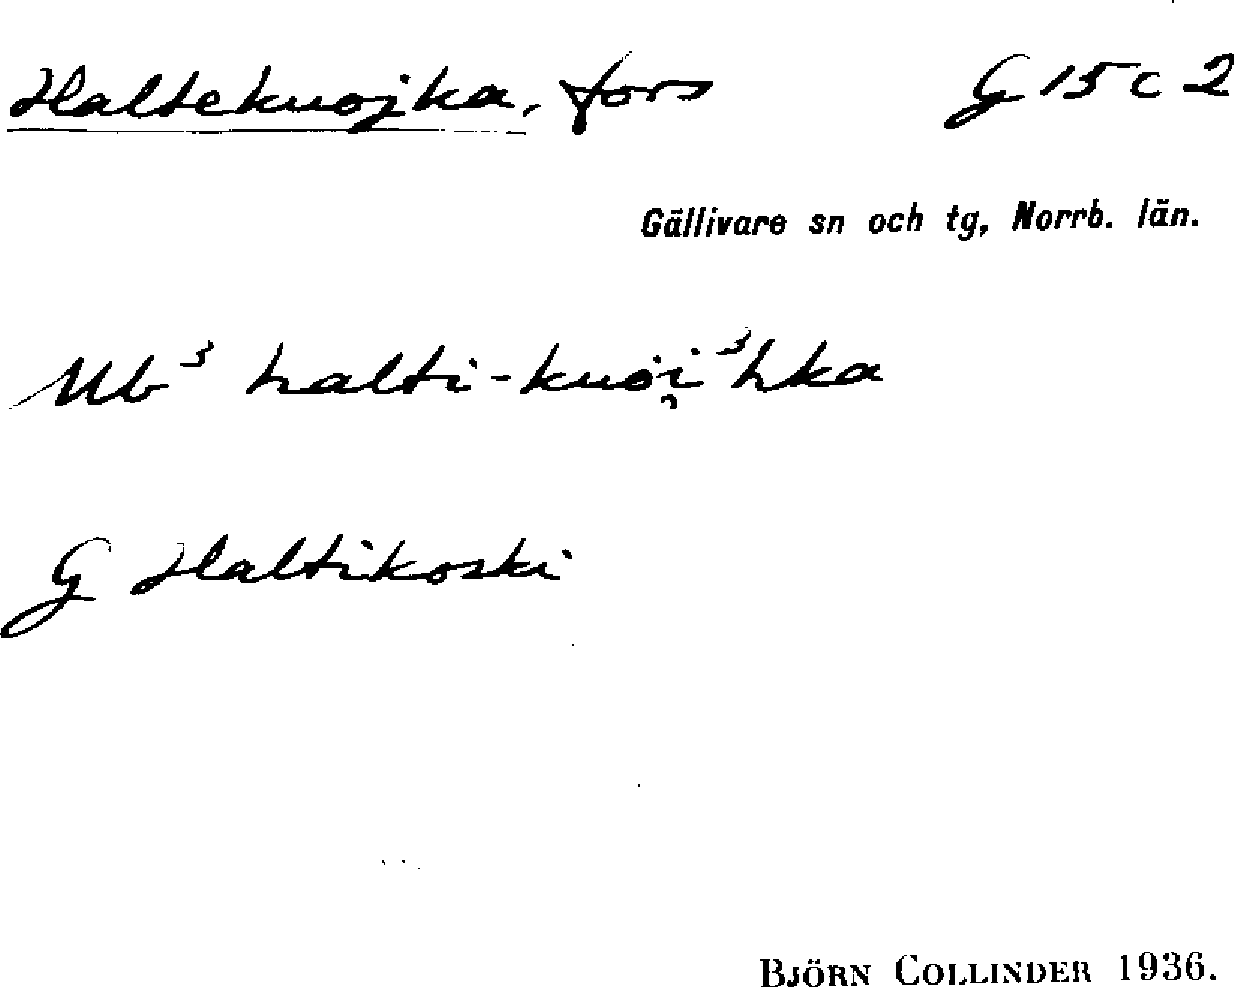 Haltekuojka, fors G 15 c 2
Gällivare sn och tg, Norrb. län.
Mb³ halti-kuòi̯³hka
G Haltikoski
BJÖRN COLLINDER 1936.